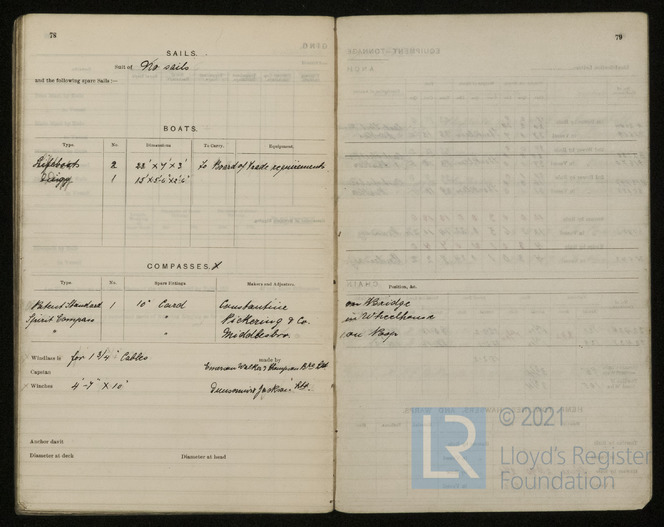 78
SAILS.
Suit of No sails
and the following spare Sails:—
BOATS.
Type. No. Dimension To Carry. Equipment.
Lifeboats 2 22' x 7' x 3' to Board of trade requirements
1 15' x 5'-6" x 2'-6"
COMPASSES. X
Type. No. Spare fittings Makers and Adjusters.
Patent Standard 1 10" Card Constantine
Spirit Compass " Pickering & Co.
" Middlesbro.
Windlass is for 1 3/4" Cables made by Emerson Walker Thompson Bros Ltd
Capstan
x Winches 4 - 7" x 10" Jackson Ltd.
Anchor davit
Diameter at deck Diameter at head
79
Position, &c.
on Bridge
in Wheelhouse
on Poop
© 2021
LR
Lloyd's Register
Foundation